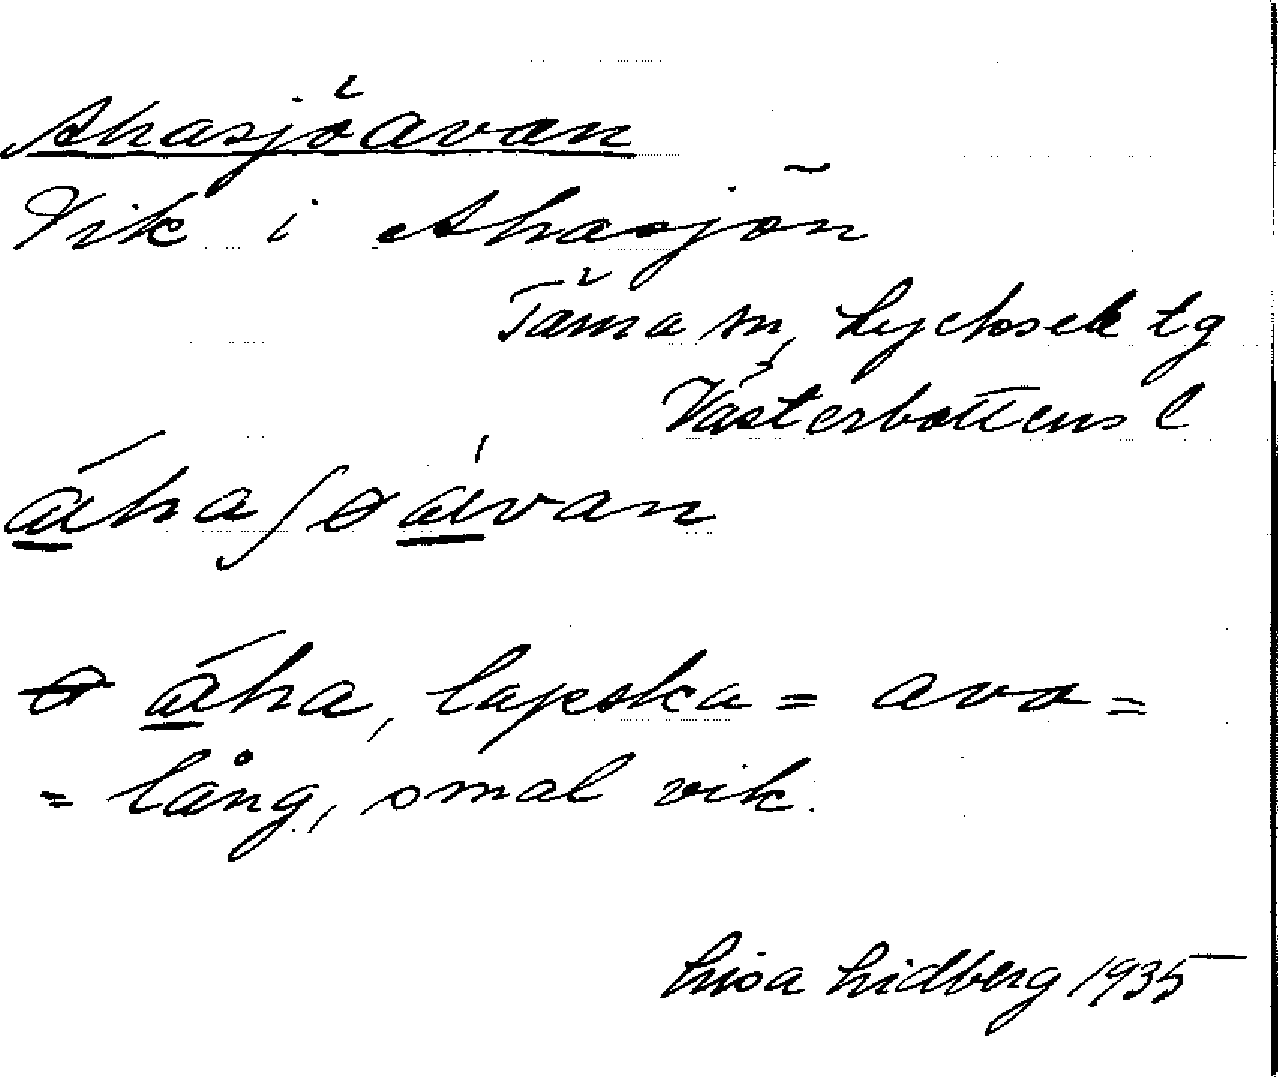 Ahasjöavan
Vik i Ahasjön
Tärna sn, Lycksele tg
Västerbottens l
a̲ha ʃɵ a̲van
ɵ a̲ha, lapska = ava =
= lång, smal vik.
Lisa Lidberg 1935